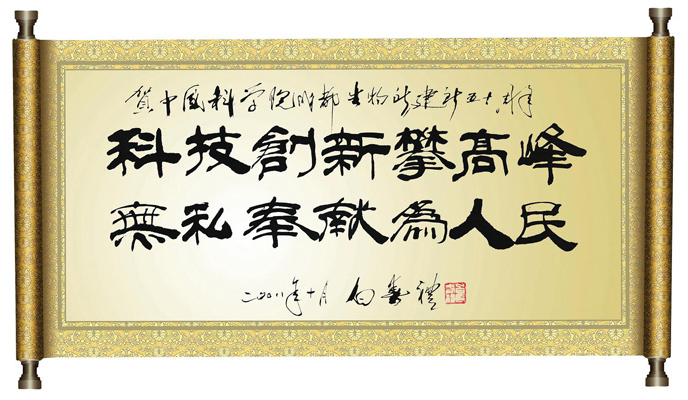 贺中国科学院成都生物所建所五十周年
科技創新攀高峰
無私奉献為人民
二〇〇八年十月 白壽禮